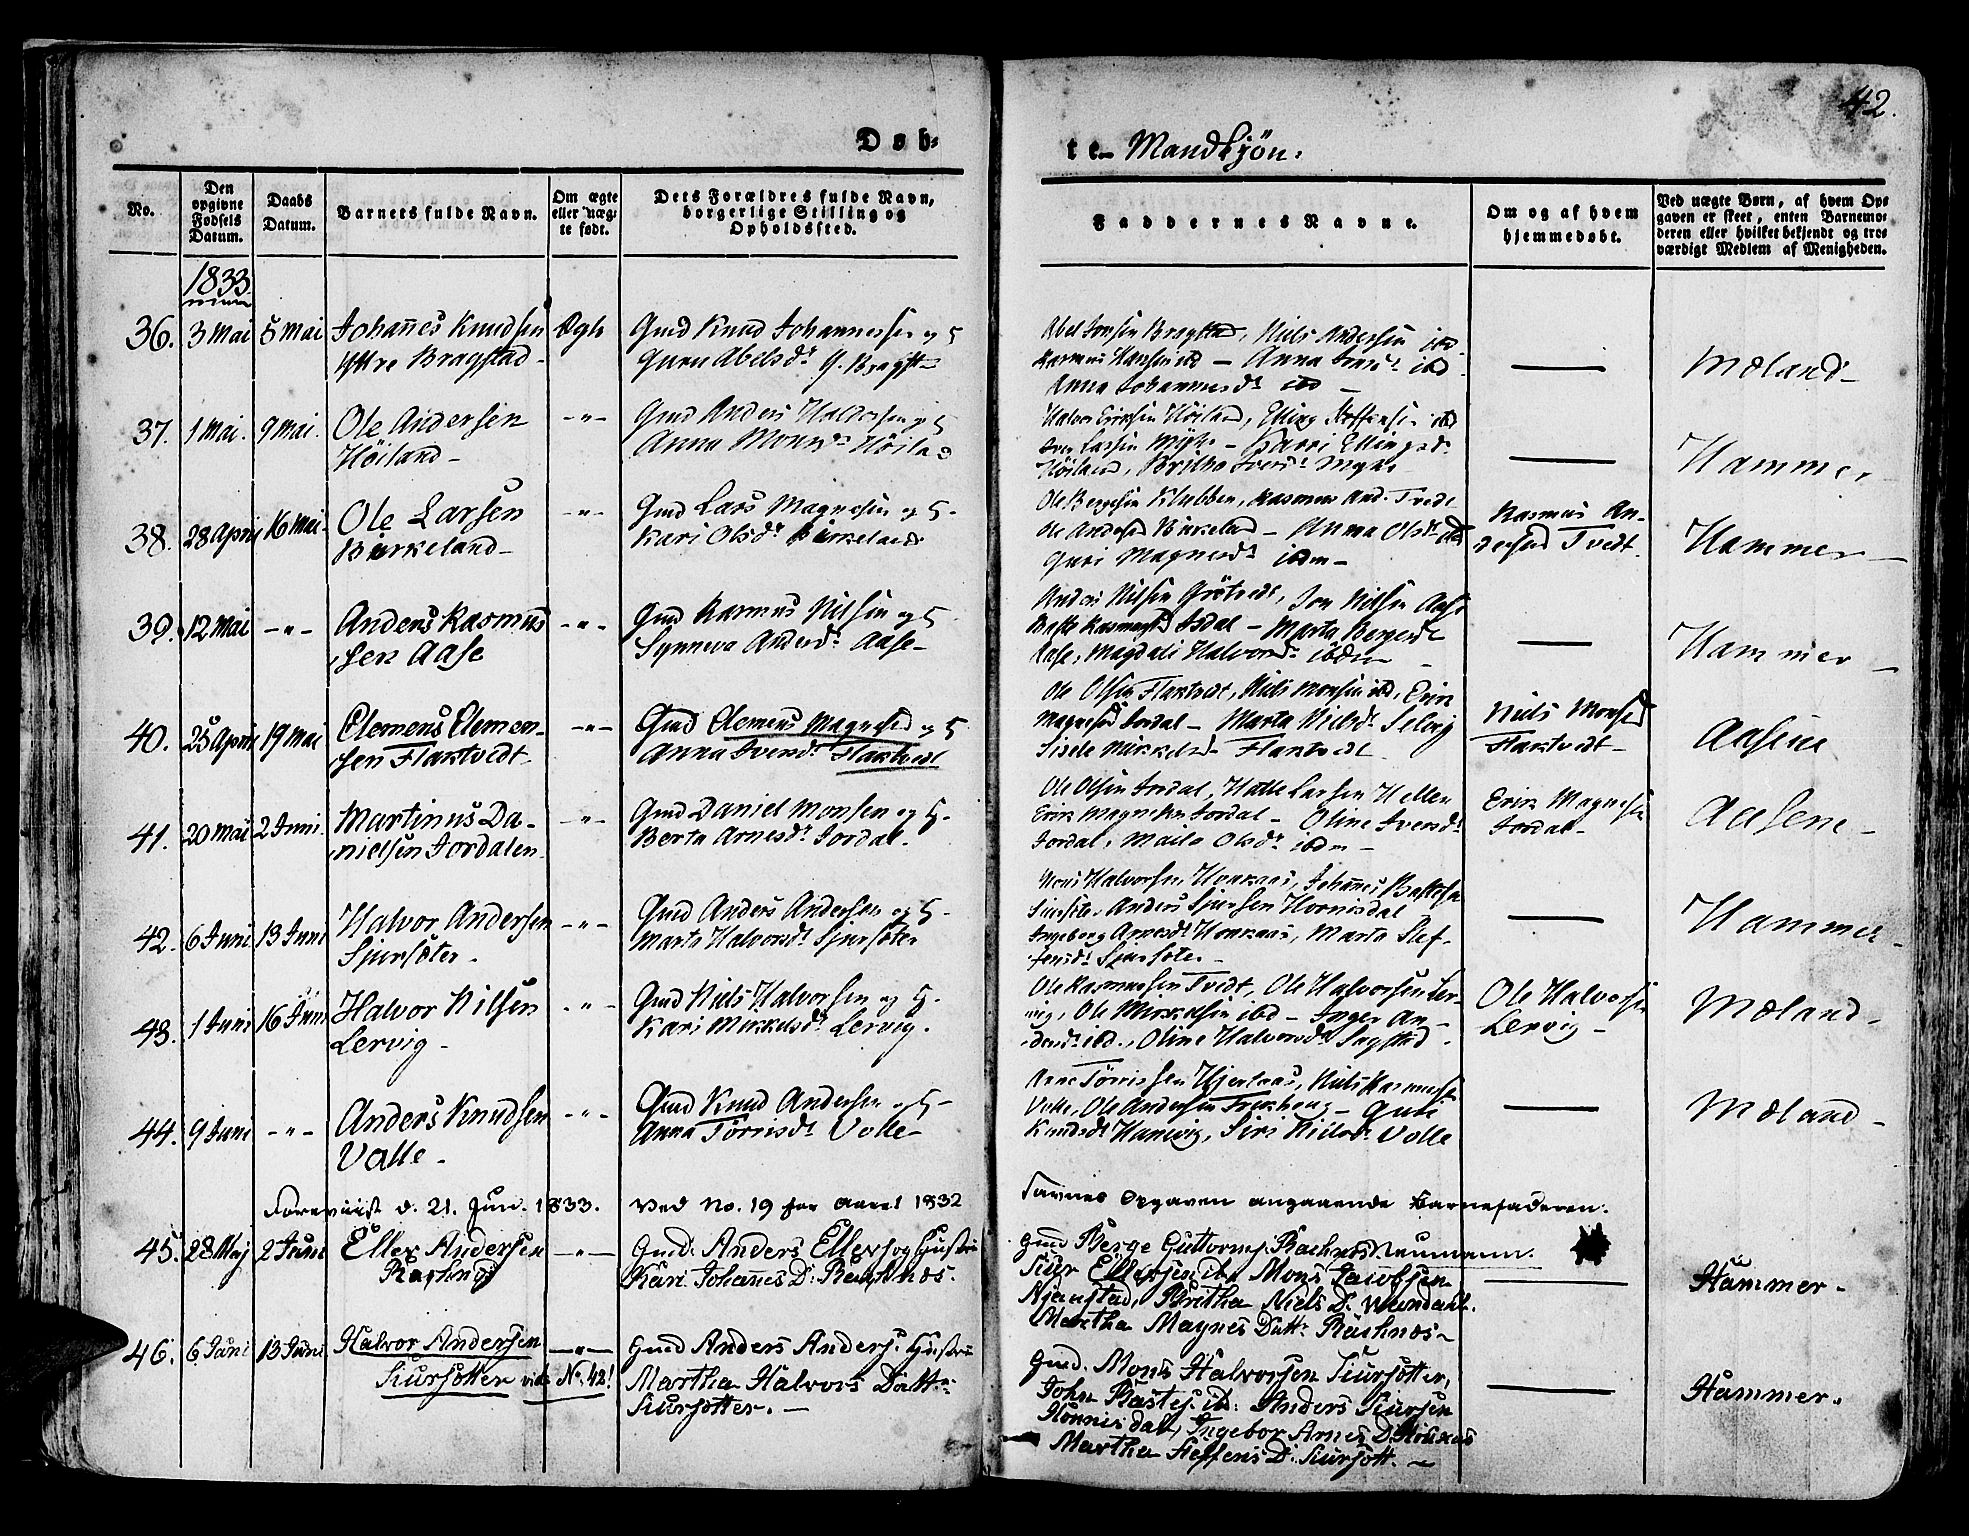 42.
Døb-
te Mandkjön.
No.
Den opgivne Fødsels Datum.
Daabs Datum.
Barnets fulde Navn.
Om ægte eller uægte født.
Dets Forældres fulde Navn, borgerlige Stilling og Opholdssted.
Faddernes Navne.
Om og af hvem hjemmedøbt.
Ved uægte Børn, af hvem Opgaven er skeet, enten Barnemoderen eller hvilket bekjendt og troværdigt Medlem af Menigheden.
1833
36. 3 Mai 5 Mai Johannes Knudsen Ægte Gmd Knud Johannessen og H
Yttre Bragstad Guru Abelsdr Y. Bragst
Abel Bragstad, Niels Andersen ibd
Rasmus Hansen ibd - Anna ibd
Anna Johannesdr ibd -
Mæland -
37. 1 Mai. 9 Mai. Ole Andersen -"- Gmd Anders Halvorsen og H
Höiland - Anna Monsdr Höiland
Halvor Eriksen Höiland, Elling Steffensen ibd
Iver Larsen Myhre - Ellingsdr
Höiland, Britha Iversdr
Hammer
38. 28 April 16 Mai. Ole Larsen -"- Gmd Lars Magnesen og H.
Birkeland - Kari Olsdr Birkeland
Ole Bergesen Klubben, Rasmus And. Tvedt
Ole Andersen Birkeland - Anna Olsdr ibd
Guri Magnesdr ibdm -
Rasmus An-
dersen Tvedt.
Hammer -
39. 12 Mai -"- Anders Rasmus -"- Gmd Rasmus Nilsen og H.
sen Aase Synneva Andersdr Aase -
Anders Nilsen Grötvedt, Jon Nilsen Aase
Baste Rasmussen Isdal - Marta Bergesdr
Aase, Magdali Halvorsdr ibdm
Hammer -
40. 25 April 19 Mai Clemens Clemen- -"- Gmd Clemens Magnesen og H
sen Flaktvedt. Anna Iversdr Flaktvedt
Ole Olsen Flaktvedt, Niels Monsen ibd, Erik
Magnesen Jordal - Marta Nielsdr Selvig
Sisele Mikkelsdr Flaktvedt
Niels Monsen
Flaktvedt -
Aasene
41. 20 Mai 2 Juni. Martinus Da- -"- Gmd Daniel Monsen og H.
nielsen Jordalen. Berta Arnesdr Jordal.
Ole Olsen Jordal, Halle Larsen Hellen
Erik Magnesen Jordal - Oline Iversdr
Jordal, Olsdr ibdm -
Erik Magnesen
Jordal -
Aasene -
42. 6 Juni 13 Juni Halvor Andersen -"- Gmd Anders Andersen og H.
Sjursöter - Marta Halvorsdr Sjursöter
Mons Halvorsen, Johannes Bastesen
Sjursöter, Anders Sjursen Hornisdal
Ingeborg Arnesdr, Marta Stef-
fensdr Sjursöter -
Hammer -
43. 1 Juni 16 Juni Halvor Nilsen -"- Gmd Niels Halvorsen og H.
Lervig - Kari Mikkelsdr Lervig.
Ole Rasmussen Tvedt, Ole Halvorsen Ler-
vig, Ole Mikkelsen ibd - Inger An-
dersdr ibd., Oline Halvorsdr Sagstad.
Ole Halvorsen
Lervig -
Mæland -
44. 9 Juni -"- Anders Knudsen -"- Gmd Knud Andersen og H -
Valle - Anna Törrisdr Valle -
Arne Törrissen Hjertaas, Niels Rasmussen
Valle, Ole Andersen - Guri
Knudsdr Hanevig, Siri Nielsdr Valle
Mæland -
Foreviist d. 21. Jun. 1833. Ved No. 19 for Aaret 1832
savnes Opgaven angaaende Barnefaderen.
Neumann.
45. 28 Maj 2 Juni Eller Andersen -"- Gmd: Anders Ellers og Hustrue
Rachnøs Kari Johannes D: Rachnøs.
Gmd Berge Guttorms: Rachnøs
Siur Ellersen ib: Mons Jacobsen
Njaastad, Britha Niels D:
Martha Magnes Datt: Rachnøs -
Hammer -
46. 6 Juni 13 Juni Halvor Andersen -"- Gmd Anders Anders: Hustrue
Siursøtter vide No. 42! Martha Halvors Datt:
Siursøtter. -
Gmd. Mons Halvorsen Siursøtter,
John Bastes: ib: Anders Siursen
Hornisdal, Ingebor Arnes D:
Martha Steffens D: Siursøtt. -
Hammer.